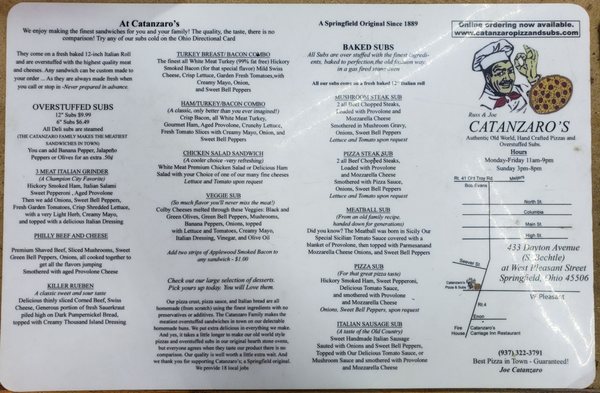 At Catanzaro's
We enjoy making the finest sandwiches for you and your family! The quality, the taste, there is no
comparison! Try any of our subs cold on the Ohio Directional Card
They come on a fresh baked 12-inch Italian Roll
and are overstuffed with the highest quality meat
and cheeses. Any sandwich can be custom made to
your order ... As they are always made fresh when
you call or stop in -Never prepared in advance.
OVERSTUFFED SUBS
12" Subs $9.99
6" Subs $6.49
All Deli subs are steamed
(THE CATANZARO FAMILY MAKES THE MEATIEST
SANDWICHES IN TOWN)
You can add Banana Pepper, Jalapeño
Peppers or Olives for an extra .50¢
3 MEAT ITALIAN GRINDER
(A Champion City Favorite)
Hickory Smoked Ham, Italian Salami
Sweet Pepperoni , Aged Provolone
Then we add Onions, Sweet Bell Peppers,
Fresh Garden Tomatoes, Crisp Shredded Lettuce,
with a very Light Herb, Creamy Mayo,
and topped with a delicious Italian Dressing
PHILLY BEEF AND CHEESE
Premium Shaved Beef, Sliced Mushrooms, Sweet
Green Bell Peppers, Onions, all cooked together to
get all the flavors jumping
Smothered with aged Provolone Cheese
KILLER RUEBEN
A classic sweet and sour taste
Delicious thinly sliced Corned Beef, Swiss
Cheese, Generous portion of fresh Sauerkraut
piled high on Dark Pumpernickel Bread,
topped with Creamy Thousand Island Dressing
TURKEY BREAST/ BACON COMBO
The finest all White Meat Turkey (99% fat free) Hickory
Smoked Bacon (for that special flavor) Mild Swiss
Cheese, Crisp Lettuce, Garden Fresh Tomatoes,with
Creamy Mayo, Onion,
and Sweet Bell Peppers
HAM/TURKEY/BACON COMBO
(A classic, only better than you ever imagined!)
Crisp Bacon, all White Meat Turkey,
Gourmet Ham, Aged Provolone, Crunchy Lettuce,
Fresh Tomato Slices with Creamy Mayo, Onion, and
Sweet Bell Peppers
CHICKEN SALAD SANDWICH
(A cooler choice -very refreshing)
White Meat Premium Chicken Salad or Delicious Ham
Salad with Your Choice of one of our many fine cheeses
Lettuce and Tomato upon request
VEGGIE SUB
(So much flavor you'll never miss the meat!)
Colby Cheeses melted through these Veggies: Black and
Green Olives, Green Bell Peppers, Mushrooms,
Banana Peppers, Onions, topped
with Lettuce and Tomatoes, Creamy Mayo,
Italian Dressing, Vinegar, and Olive Oil
Add two strips of Applewood Smoked Bacon to
any sandwich - $1.00
Check out our large selection of desserts.
Pick yours up today. You will Love them.
Our pizza crust, pizza sauce, and Italian bread are all
homemade (from scratch) using the finest ingredients with no
preservatives or additives. The Catanzaro Family makes the
meatiest overstuffed sandwiches in town on our delectable
homemade buns. We put extra delicious in everything we make.
And yes, it takes a little longer to make our old world style
pizzas and overstuffed subs in our original hearth stone ovens,
but everyone agrees when they taste our product there is no
comparison. Our quality is well worth a little extra wait. And
we thank you for supporting Catanzaro's; a Springfield original.
We provide 18 local jobs
A Springfield Original Since 1889
BAKED SUBS
All Subs are over stuffed with the finest ingredi-
ents, baked to perfection the old fashion way
in a gas fired stone oven
All our subs come on a fresh baked 12" Italian roll
MUSHROOM STEAK SUB
2 all Beef Chopped Steaks,
Loaded with Provolone and
Mozzarella Cheese
Smothered in Mushroom Gravy,
Onions, Sweet Bell Peppers
Lettuce and Tomato upon request
PIZZA STEAK SUB
2 all Beef Chopped Steaks,
Loaded with Provolone
and Mozzarella Cheese
Smothered with Pizza Sauce,
Onions, Sweet Bell Peppers,
Lettuce and Tomato upon request
MEATBALL SUB
(From an old family recipe,
handed down for generations)
Did you know? The Meatball was born in Sicily Our
Special Sicilian Tomato Sauce covered with a
blanket of Provolone, then topped with Parmesanand
Mozzarella Cheese Onions, and Sweet Bell Peppers
PIZZA SUB
(For that great pizza taste)
Hickory Smoked Ham, Sweet Pepperoni,
Delicious Tomato Sauce,
and smothered with Provolone
and Mozzarella Cheese
Onions, Sweet Bell Peppers, upon request
ITALIAN SAUSAGE SUB
(A taste of the Old Country)
Sweet Handmade Italian Sausage
Sauted with Onions and Sweet Bell Peppers,
Topped with Our Delicious Tomato Sauce, or
Mushroom Sauce and smothered with Provolone
and Mozzarella Cheese
Online ordering now available.
www.catanzaropizzandsubs.com
Russ & Joe
CATANZARO'S
Authentic Old World, Hand Crafted Pizzas and
Overstuffed Subs.
Hours
Monday-Friday 11am-9pm
Sunday 3pm-8pm
Rt. 41 Old Troy Rd.
Meijers
Bob Evans
North St.
Columbia
Main St.
High St.
Seever St
433 Dayton Avenue
(S. Bechtle)
at West Pleasant Street
Springfield, Ohio 45506
Catanzaro's
Pizza & Subs
W Pleasant
Rt.4
Enon
Fire
House
Catanzaro's
Carriage Inn Restaurant
(937) 322-3791
Best Pizza in Town - Guaranteed!
Joe Catanzaro